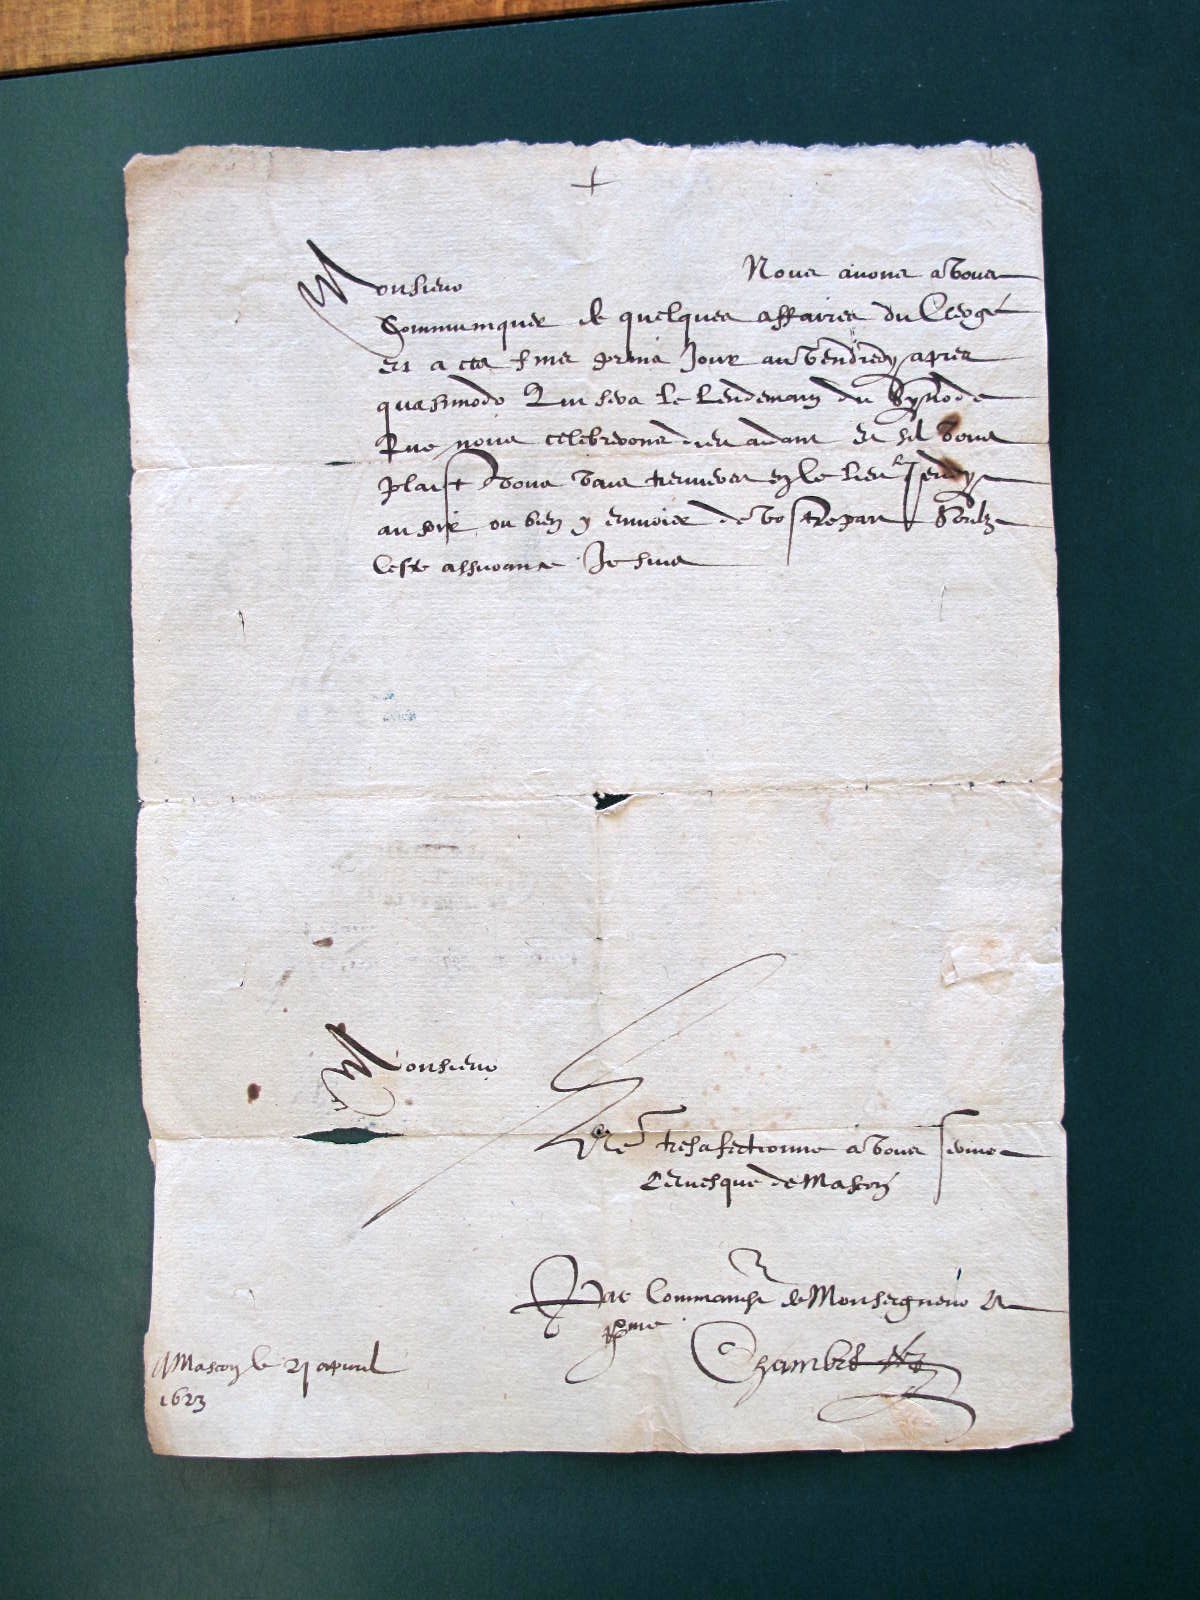 +
Monsieur Nous avons a vous
Communiquer de quelques affaires du Clergé
et a ces fins prins Jour au vendredy apres
quasimodo Qui sera le lendemain du Synode
Que nous celebrerons dieu aidant et sil vous
plaist vous vous treuverez en ce lieu le Jeudy
au soir ou bien y envoier de vostre part Soubz
ceste assurance Je suis
Monsieur
Vre tresafectionne a vous servir
Levesque de Mascon
Par Commandt de Monseigneur Rme
Chambre
A Mascon le 21 apvril
1623